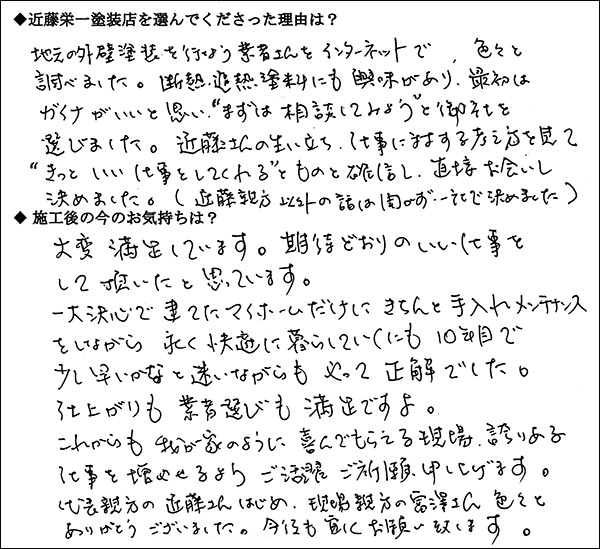 ◆近藤栄一塗装店を選んでくださった理由は？
地元の外壁塗装を行なう業者さんをインターネットで、色々と
調べました。断熱・遮熱塗料にも興味があり、最初は
ガイナがいいと思い、“まずは相談してみよう”と御社を
選びました。近藤さんの生い立ち、仕事に対する考え方を見て
“きっといい仕事をしてくれる”とものと確信し、直接お会いし
決めました。（近藤親方以外の話は聞かず一社で決めました）
◆ 施工後の今のお気持ちは？
大変満足しています。期待どおりのいい仕事を
して頂いたと思っています。
一大決心で建てたマイホームだけにきちんと手入れメンテナンス
をしながら永く快適に暮らしていくにも10年目で
少し早いかなと迷いながらもやって正解でした。
仕上がりも業者選びも満足ですよ。
これからも我が家のように喜んでもらえる現場、誇りある
仕事を増やせるようご活躍ご祈願申し上げます。
代表親方の近藤さんはじめ、現場親方の富澤さん色々と
ありがとうございました。今後も宜しくお願い致します。